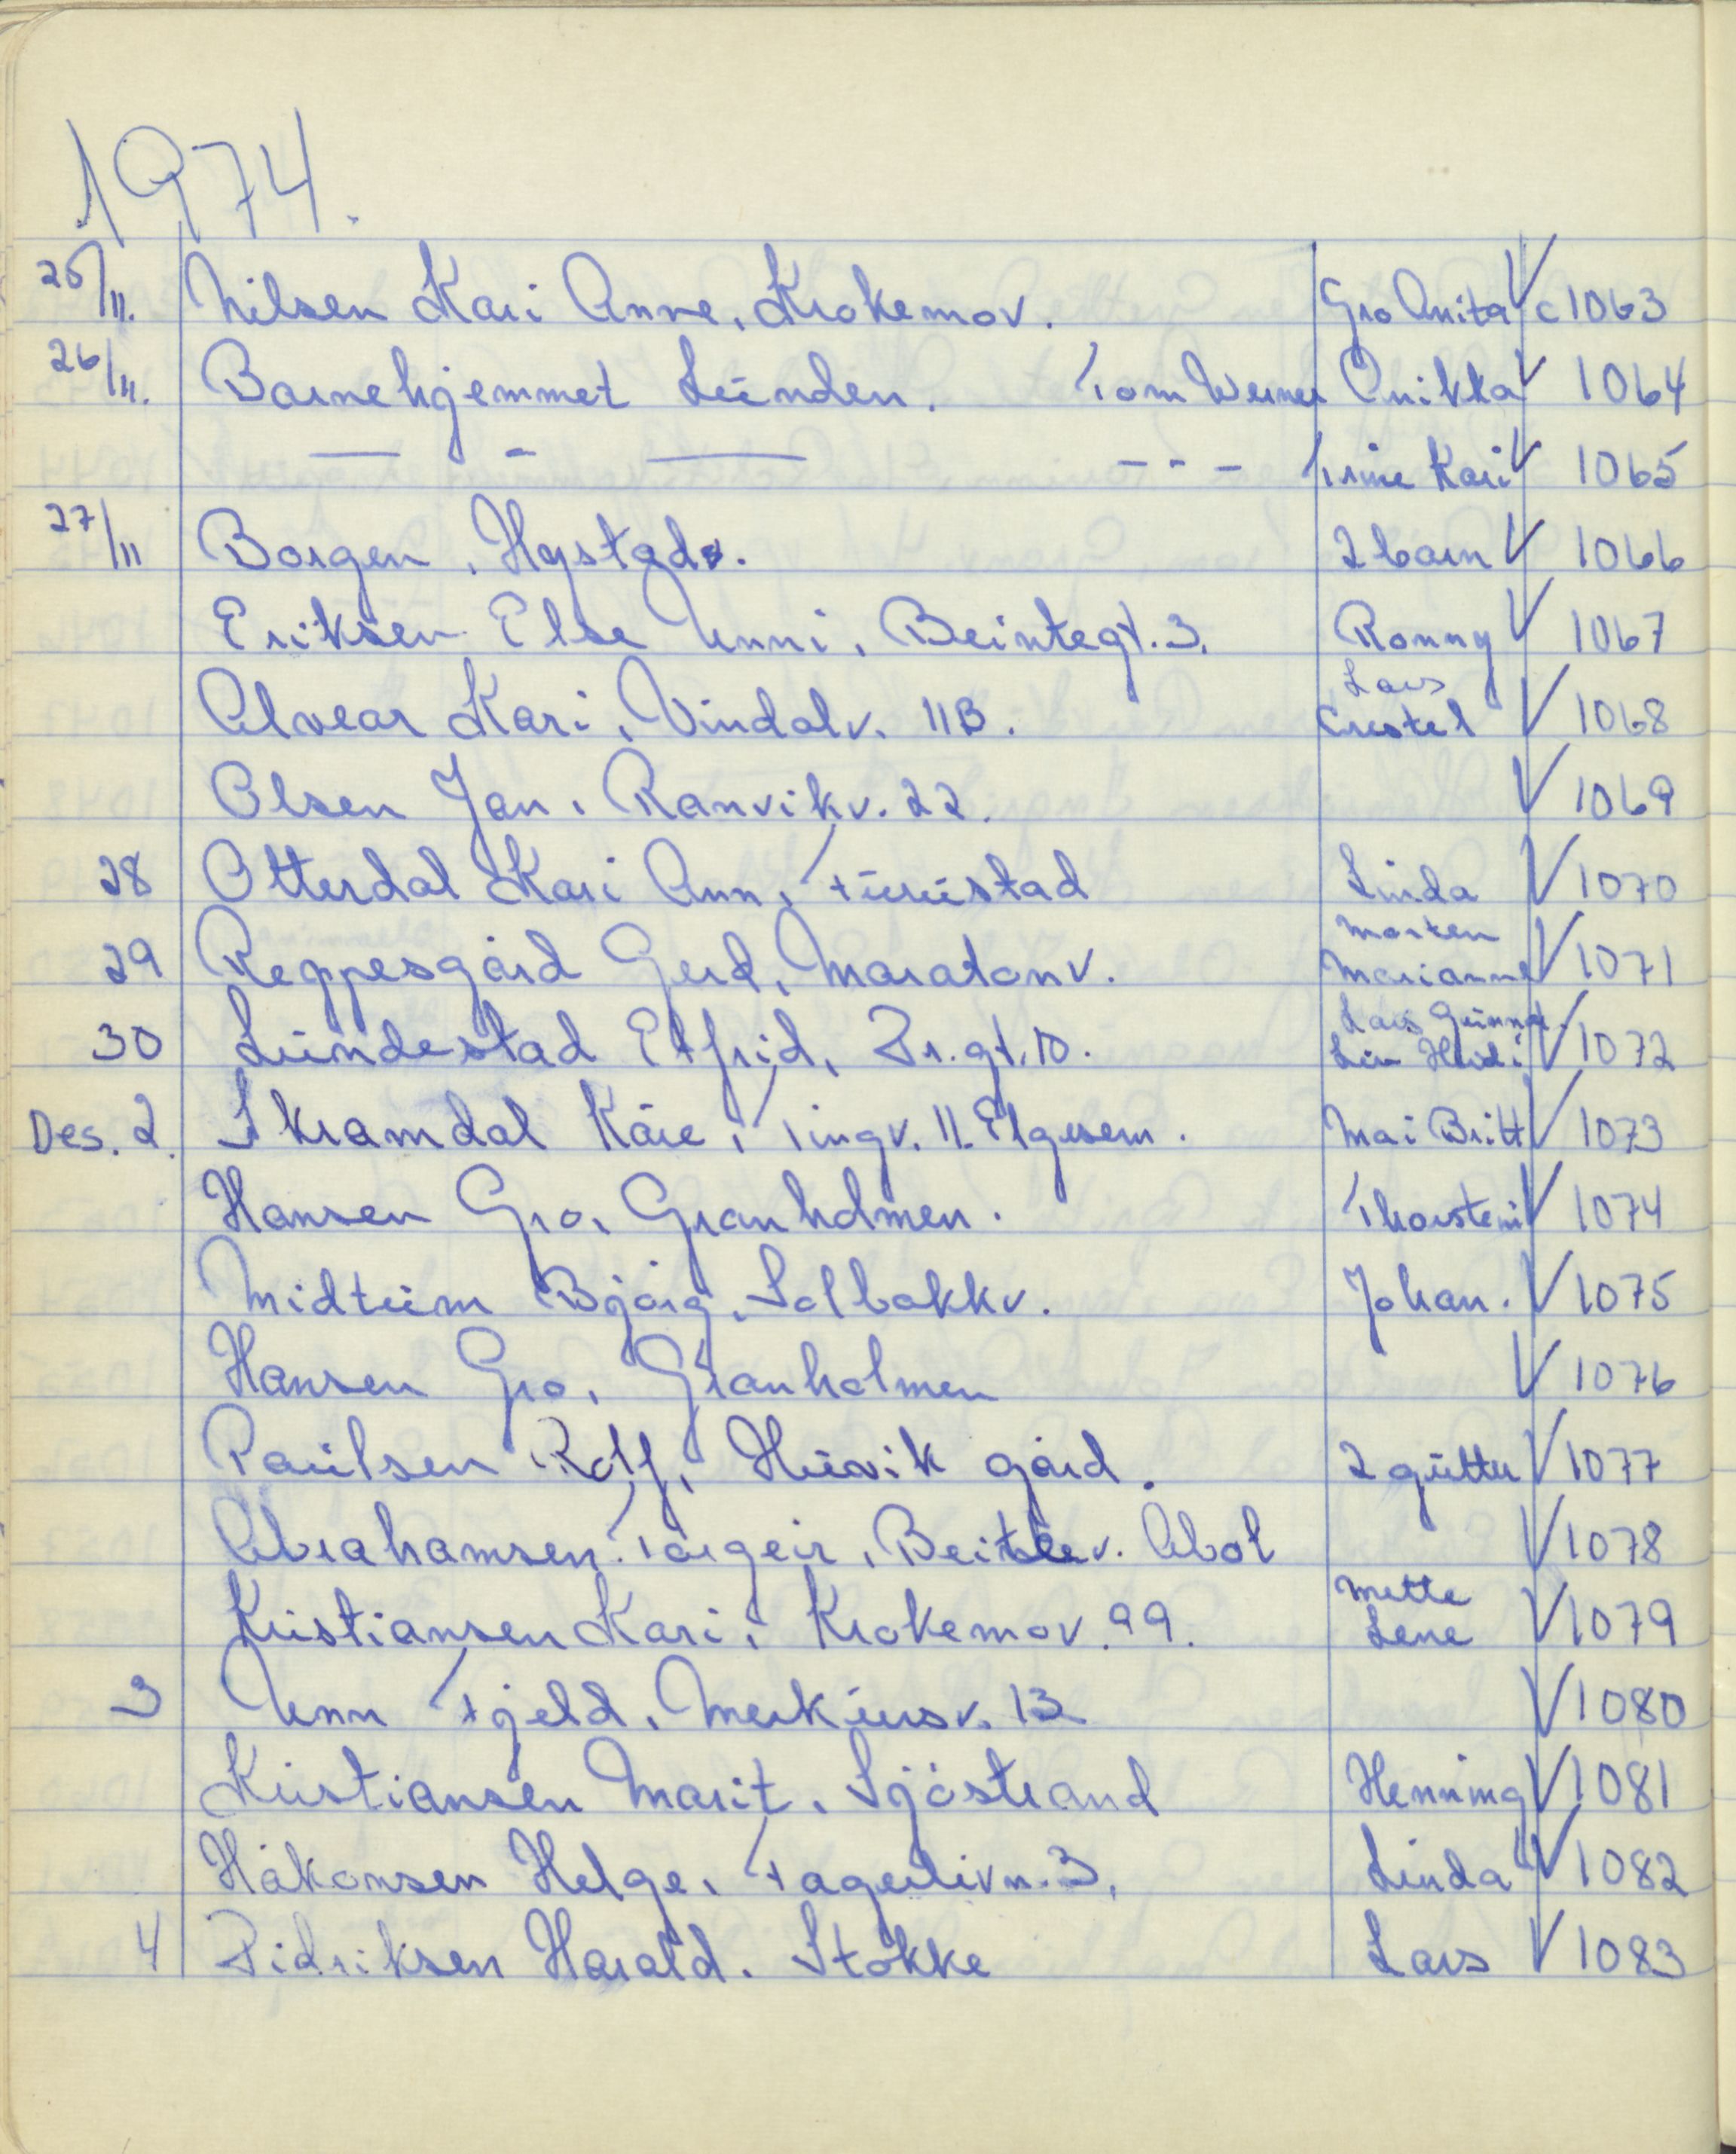 1974.
25/11. Nilsen Kari Anne, Krokemov. Gro Anita V c 1063
26/11. Barnehjemmet Lunden. Tom Werner Anikka V 1064
— - — - - - Trine Kari V 1065
27/11 Borgen, Hystadv. 2 barn V 1066
Eriksen Else Unni, Beintegt. 3. Ronny V 1067
Alvear Kari, Vindalv. 11B. Lars Crestel V 1068
Olsen Jan, Ranvikv. 22. V 1069
28 Otterdal Kari Ann, Furustad Linda V 1070
29 Reppesgård Gerd, Maratonv. Morten Marianne V 1071
30 Lundestad Elfrid, Dr.gt. 10. Lars Gunnar Liv Heidi V 1072
Des. 2. Skramdal Kåre, Tingv. 11. Elgesem. Mai Britt V 1073
Hansen Gro, Granholmen. Thorstein V 1074
Midtum Bjørg, Solbakkv. Johan. V 1075
Hansen Gro, Granholmen V 1076
Paulsen Rolf, Huvik gård. 2 gutter V 1077
Abrahamsen Torgeir, v. Abol V 1078
Kristiansen Kari, Krokemov. 99. Mette Lene V 1079
3 Unn Fjeld, Merkursv. 13 V 1080
Kristiansen Marit, Sjøstrand Henning V 1081
Håkonsen Helge, Fagerlivn. 3. Linda V 1082
4 Didriksen Harald. Stokke Lars V 1083